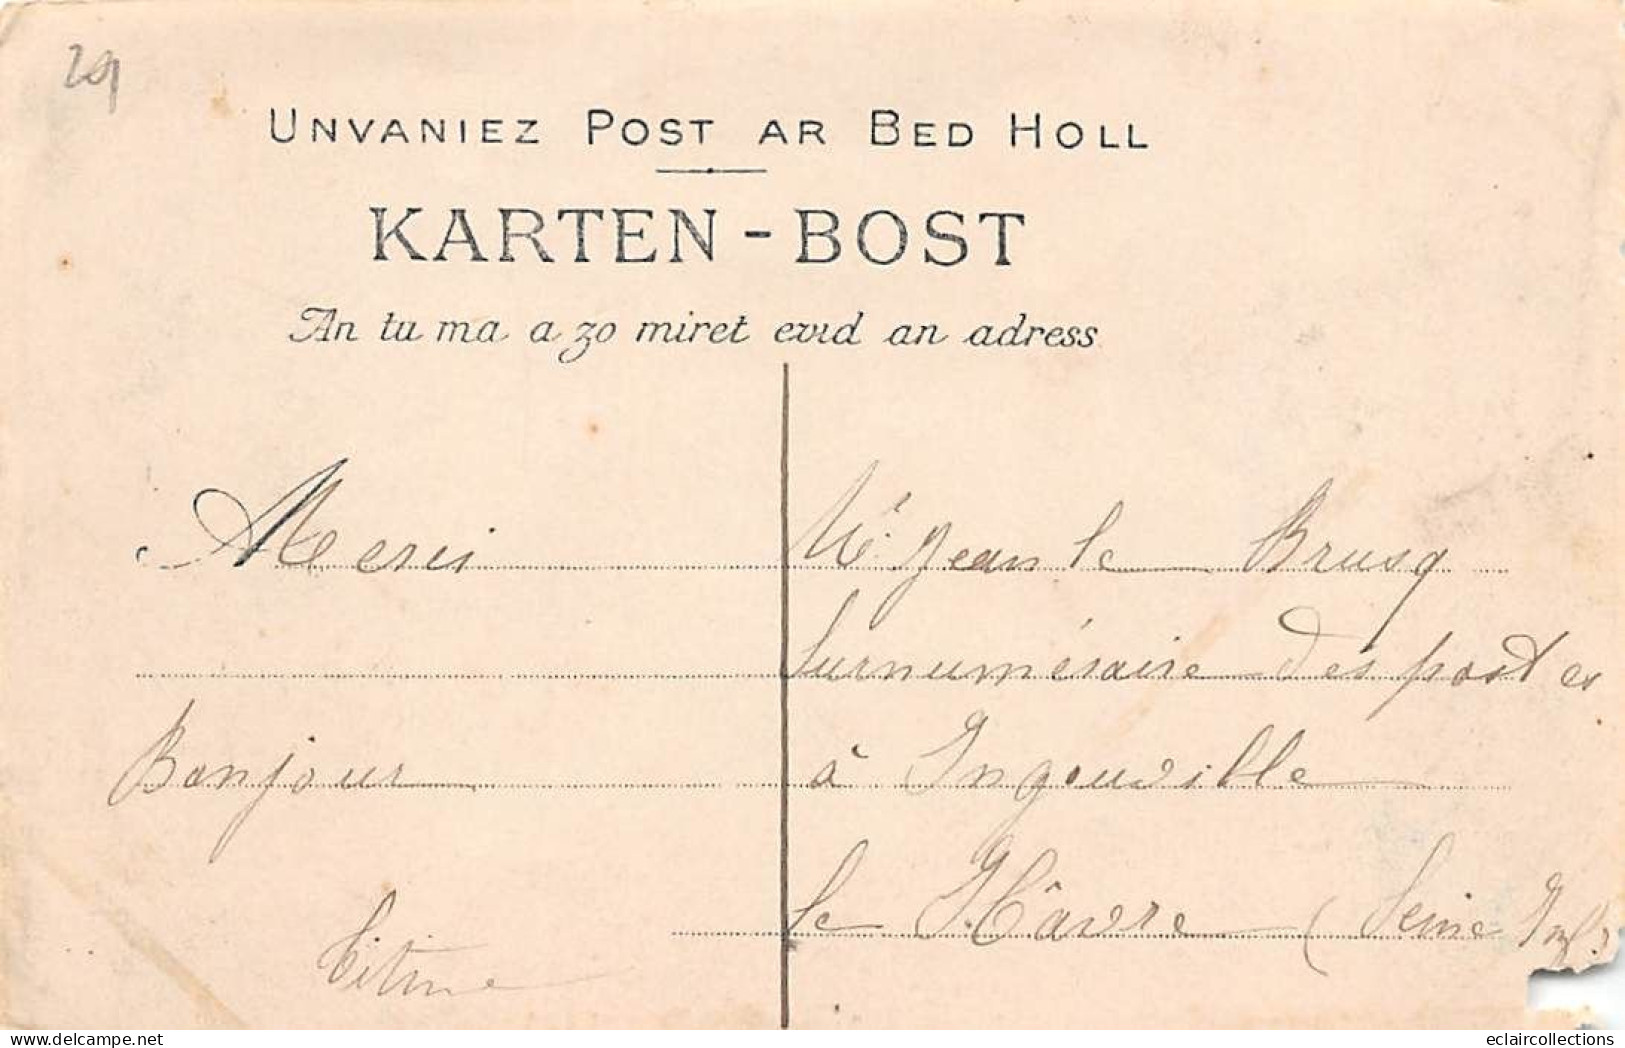 29
UNVANIEZ POST AR BED HOLL
KARTEN-BOST
An tu ma a zo miret evid an adress
Merci
Bonjour
Titine
Mr. Jean le Brusq
Surnuméraire des postes
à Ingouville
le Hâvre (Seine Inf.)
eclaircollections